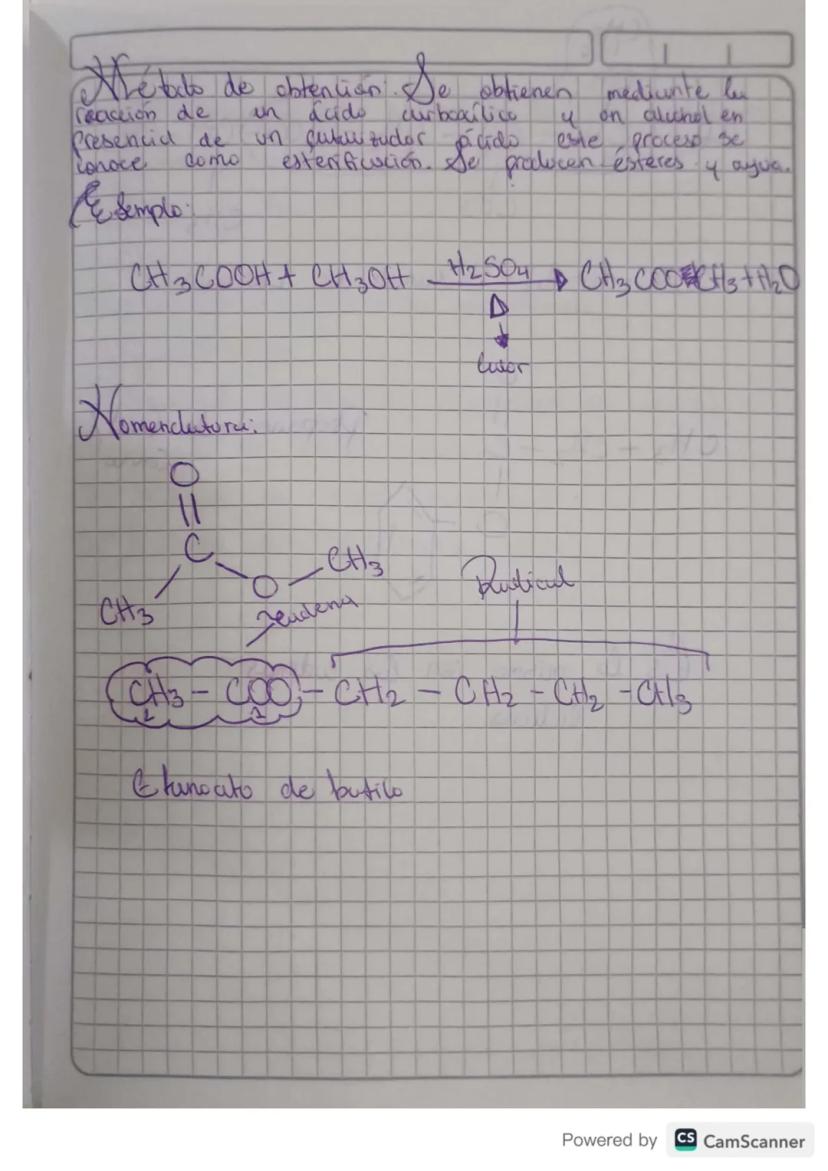 Método de obtención: Se obtienen mediante la
reacción de un ácido carboxílico y un alcohol en
presencia de un catalizador ácido este proceso se
conoce como esterificación. Se producen ésteres y agua.
Ejemplo:
CH3COOH + CH3OH H2SO4 → CH3COOCH3 + H2O
Δ
↓
Calor
Nomenclatura:
O
||
C
CH3 O CH3
Cadena
Radical
CH3 - COO - CH2 - CH2 - CH2 - CH3
2 1
Etanoato de butilo
Powered by CS CamScanner